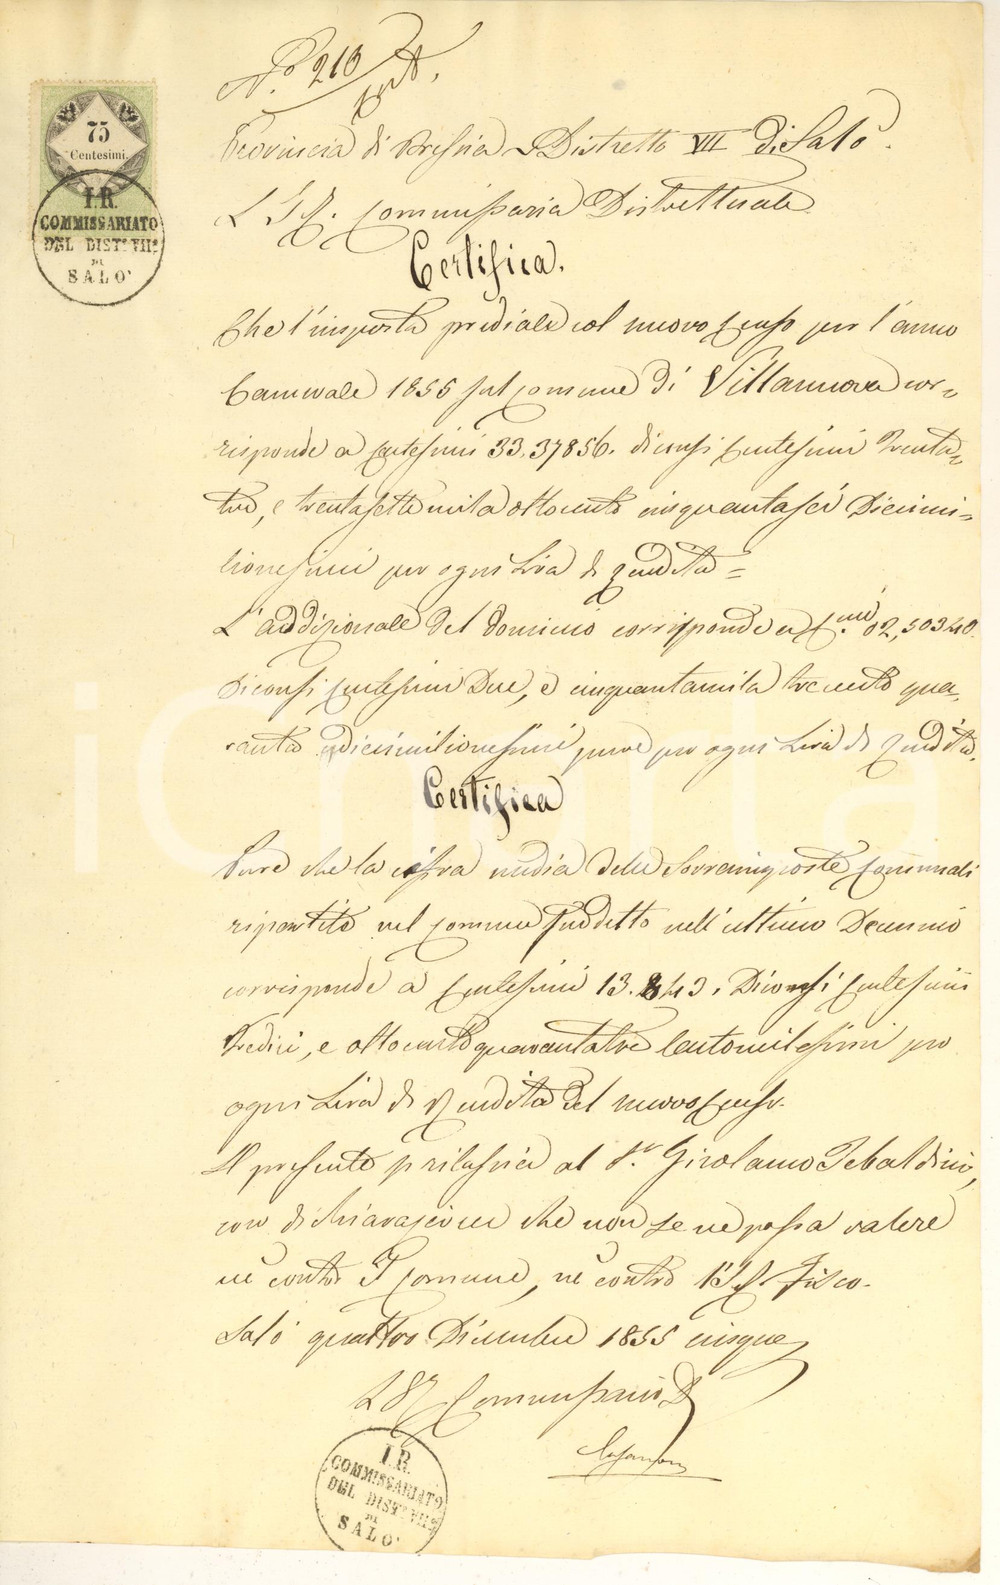 N.° 213
75
Centesimi.
I.R.
COMMISSARIATO
DEL DIST.° VII°
DI
SALO'
Provincia di Brescia Distretto VII di Salò.
L'I. R. Commissaria Distrettuale
Certifica.
Che l'imposta prediale col nuovo Censo per l'anno
Camerale 1855 sul comune di Villanuova cor-
risponde a Centesimi 33,37856. diconsi Centesimi Trenta-
tre, e trentasettemila ottocento cinquantasei Diecimi-
lionesimi per ogni Lira di Rendita =
L'addizionale del dominio corrisponde a C.mi 02,50340
Diconsi Centesimi Due, e cinquantamila trecento qua-
ranta diecimilionesimi pure per ogni Lira di Rendita.
Certifica
Pure che la cifra media delle Sovraimposte Comunali
ripartite nel comune suddetto nell'ultimo Decennio
corrisponde a Centesimi 13.843. Diconsi Centesimi
Tredici, e ottocentoquarantatre Centomilesimi per
ogni Lira di Rendita del nuovo Censo.
Il presente si rilascia al S.r Girolamo Tebaldini,
con dichiarazione che non se ne possa valere
nè contro il comune, nè contro l'I. R. Fisco.
Salò quattro Dicembre 1855 cinque
L'I R Commissario D
I.R.
COMMISSARIATO
DEL DIST.° VII°
DI
SALO'
iCharta